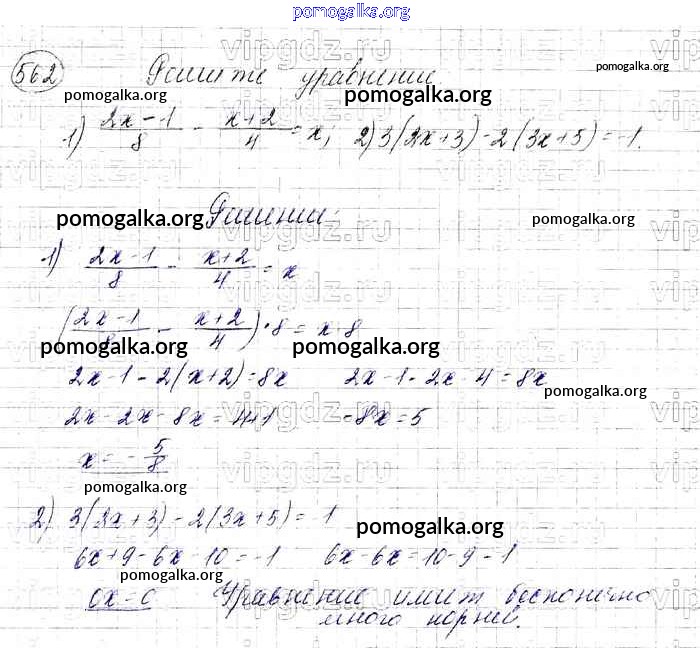 pomogalka.org
vipgdz.ru
562 Решите уравнение
pomogalka.org pomogalka.org pomogalka.org
1) (2x - 1)/8 - (x+2)/4 = x, 2) 3(2x+3) - 2(3x+5) = -1.
vipgdz.ru
Решение:
pomogalka.org pomogalka.org
1) (2x-1)/8 - (x+2)/4 = x
vipgdz.ru
((2x-1)/8 - (x+2)/4) · 8 = x · 8
pomogalka.org pomogalka.org
2x - 1 - 2(x+2) = 8x 2x - 1 - 2x - 4 = 8x
pomogalka.org
2x - 2x - 8x = 4+1 -8x = 5
vipgdz.ru
x = - 5/8
pomogalka.org
2) 3(2x+3) - 2(3x+5) = -1
pomogalka.org
6x+9-6x-10 = -1 6x-6x = 10-9-1
pomogalka.org
0x = 0 Уравнение имеет бесконечно
много корней.